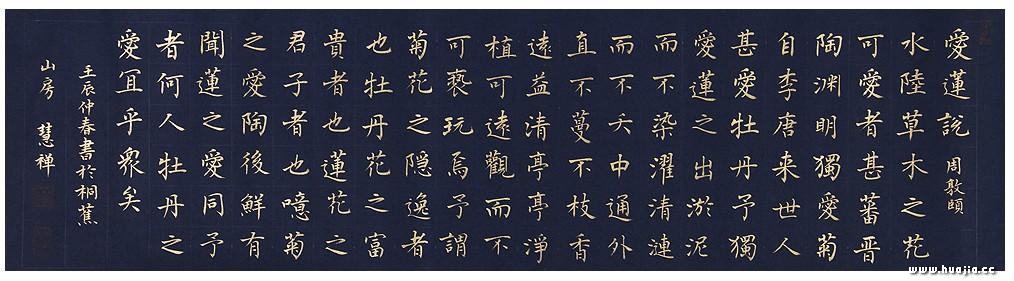 愛蓮說 周敦頤
水陸草木之花
可愛者甚蕃晋
陶渊明獨愛菊
自李唐来世人
甚愛牡丹予獨
愛蓮之出淤泥
而不染濯清漣
而不夭中通外
直不蔓不枝香
遠益清亭亭淨
植可遠觀而不
可亵玩焉予謂
菊花之隐逸者
也牡丹花之富
貴者也蓮花之
君子者也噫菊
之愛陶後鮮有
聞蓮之愛同予
者何人牡丹之
愛宜乎衆矣
壬辰仲春書於桐蕉
山房 慧禅
www.huajia.cc